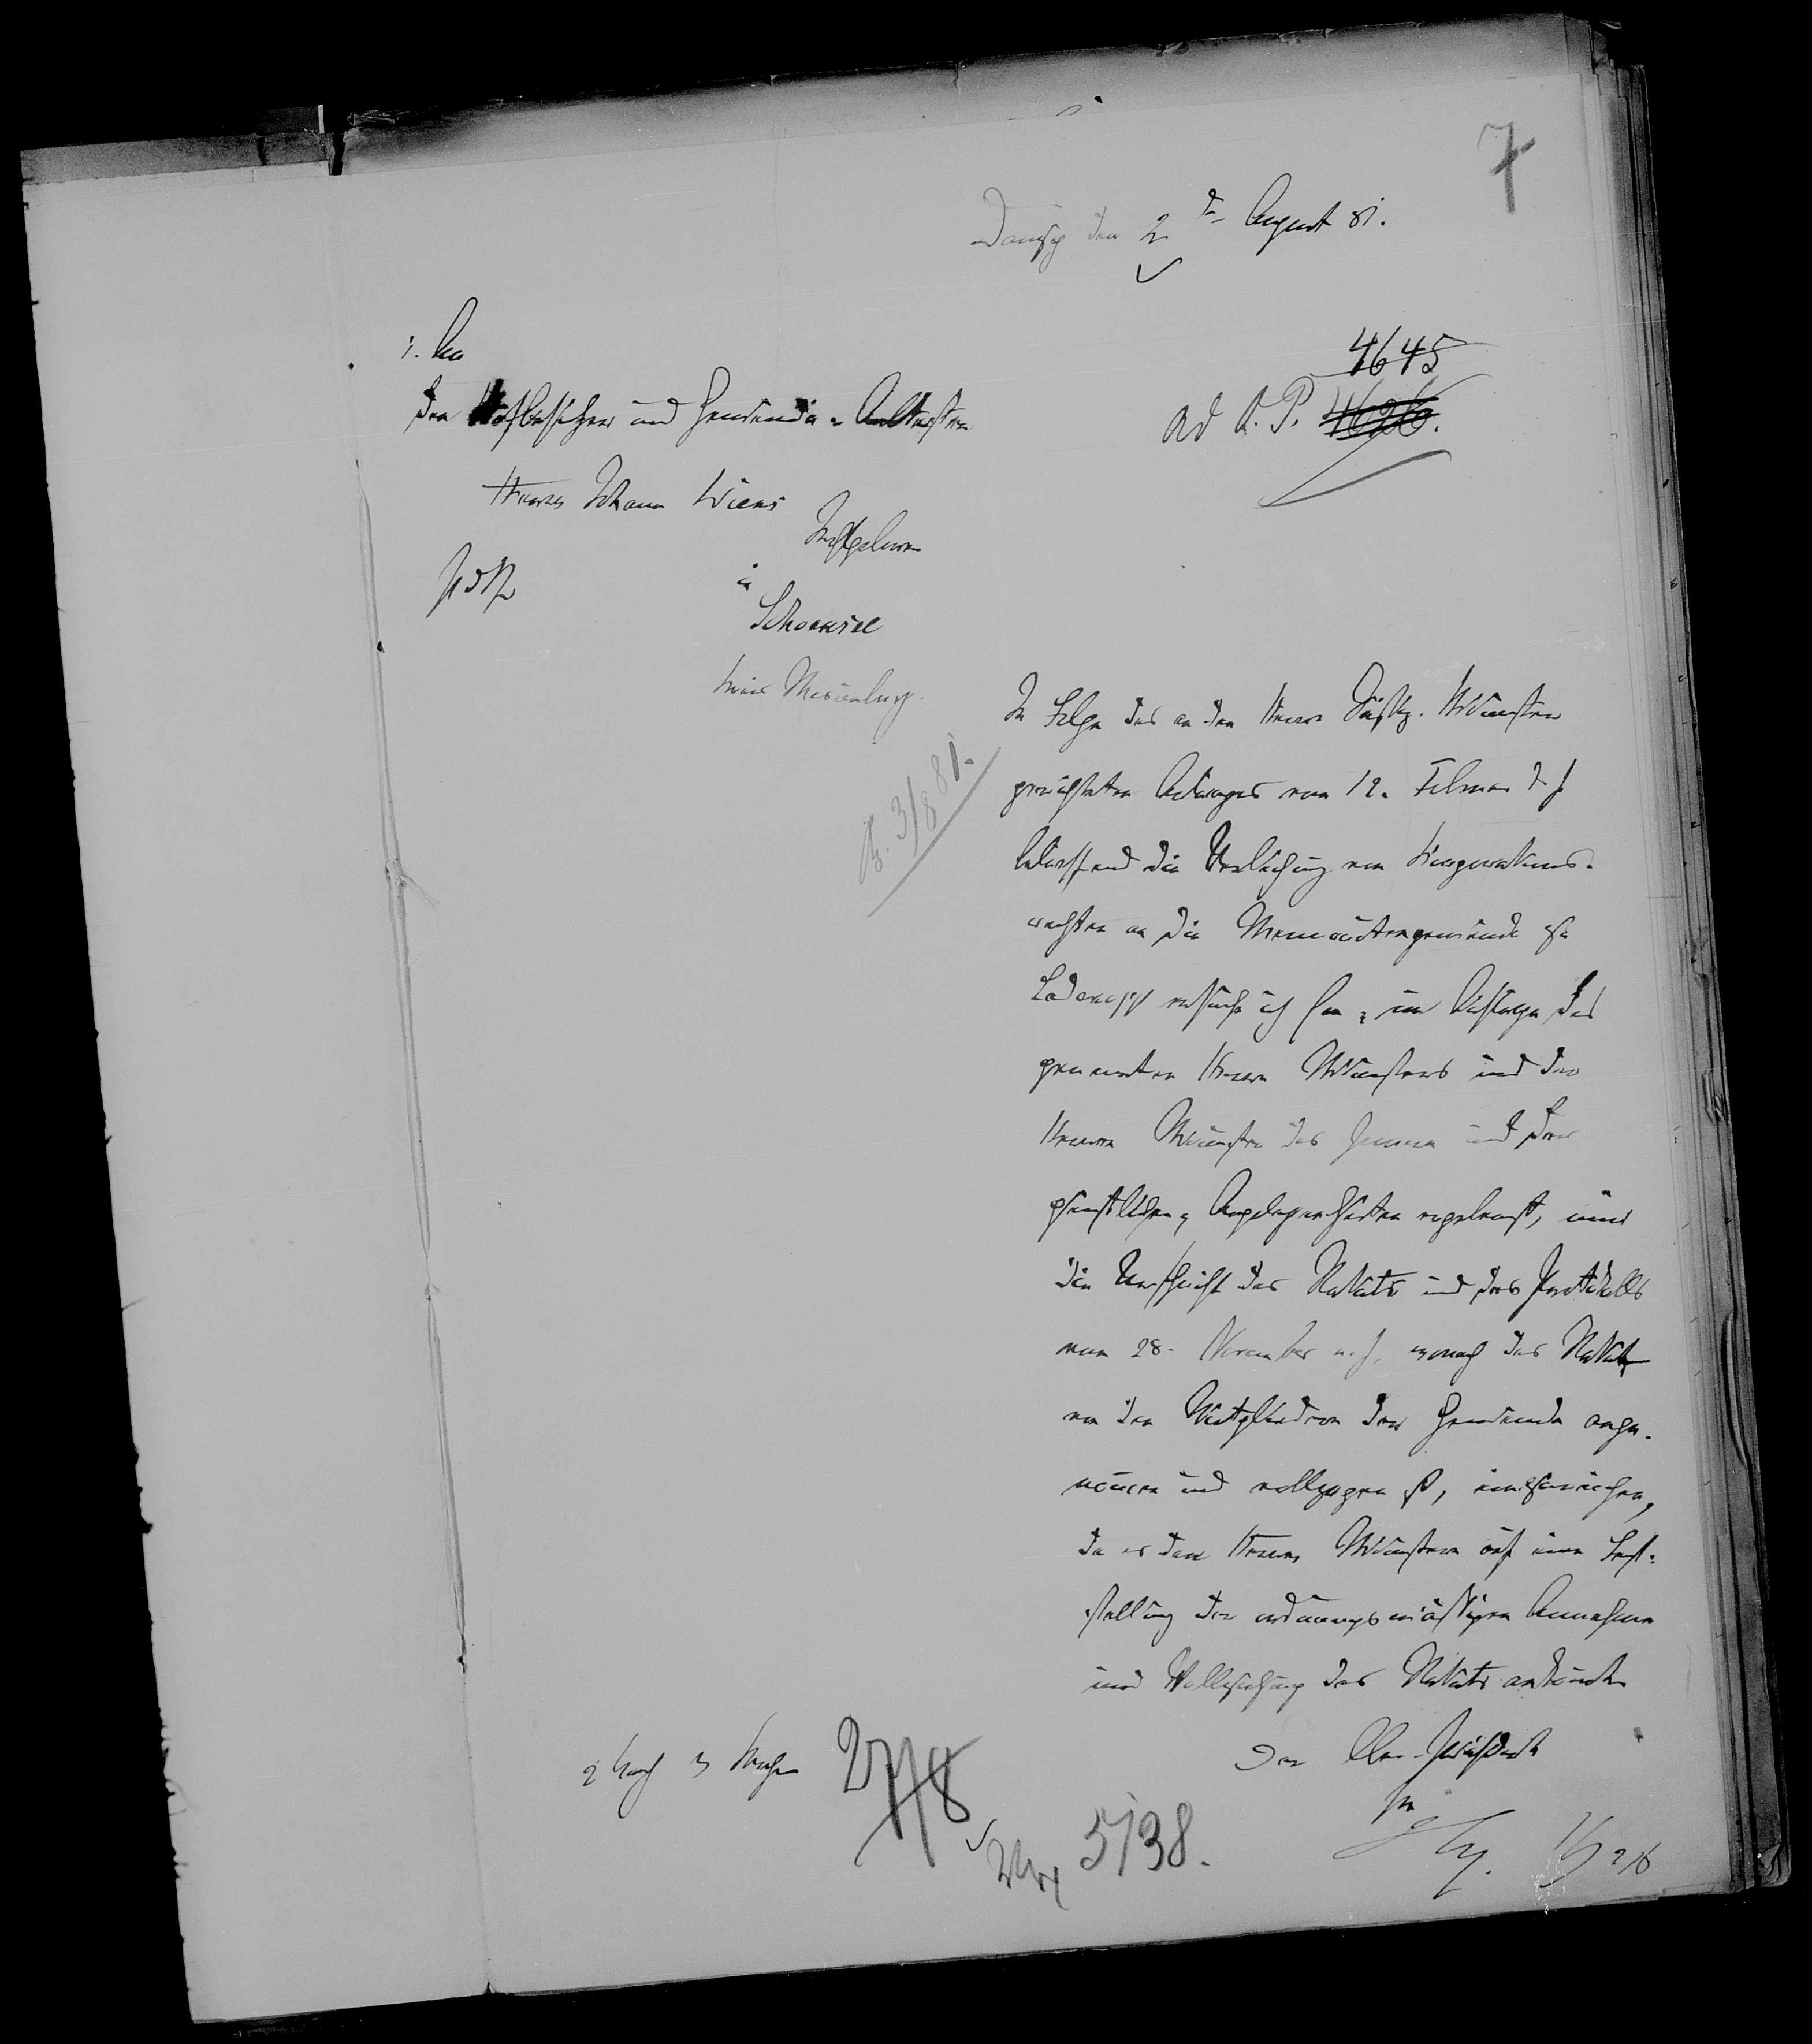 7
Danzig den 2 t August 81.
1. An
den Hofbesitzer und Gemeinde-Aeltesten
Herrn Johann Wiens
Wohlgeboren
in
Schoensee
Kreis Marienburg.
4645
ad O. P. 4626.
In Folge des an den Herrn Justiz-Minister
gerichteten Antrages vom 12. Februar d J
betreffend die Verleihung von Korporations-
rechten an die Mennonitengemeinde zu
Ladekopp ersuche ich Sie, im Auftrage des
genannten Herrn Ministers und der
Herren Minister des Innern und der
geistlichen Angelegenheiten ergebenst, mir
die Urschrift des Statuts und des Protokolls
vom 28. November v. J. wonach das Statut
von den Mitgliedern der Gemeinde ange-
nommen und vollzogen ist, einzureichen,
da es den Herren Ministern auf eine Fest-
stellung der ordnungsmäßigen Annahme
und Vollziehung des Statuts ankommt.
Der Ober-Präsident
3/8 81.
2 Nach 3 Wochen 27/8
5138.